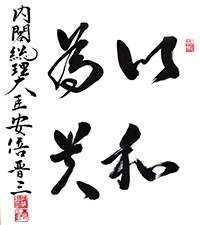 以和
為貴
内閣総理大臣安倍晋三